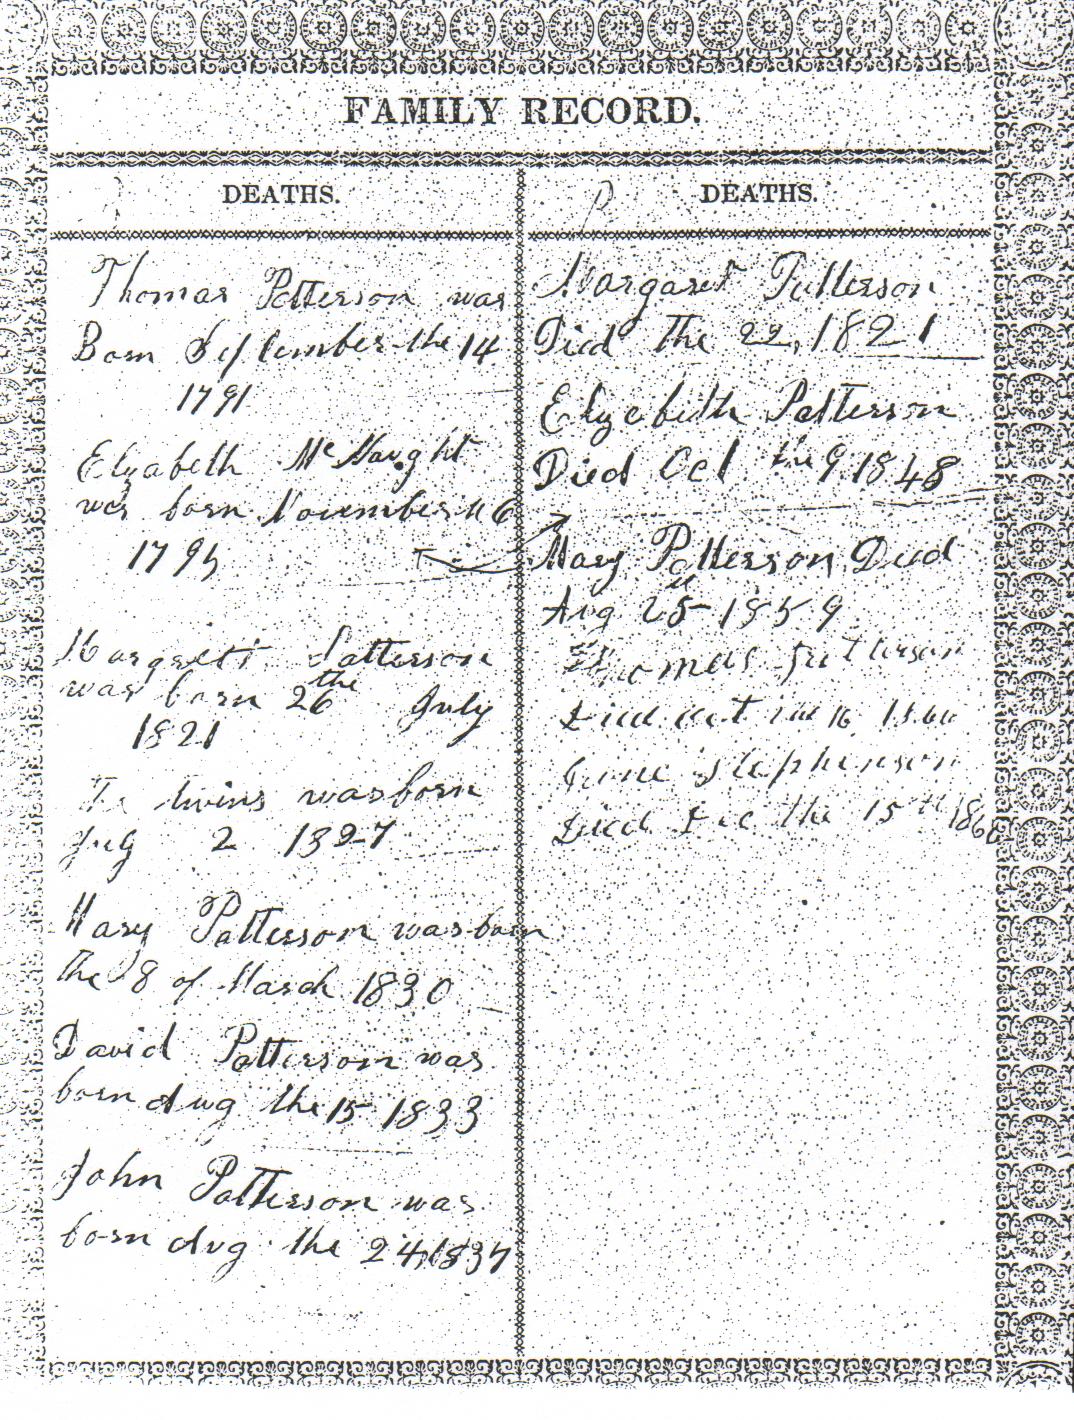 FAMILY RECORD.
DEATHS.
Thomas Patterson was
Born September the 14
1791
Elyabeth McNaught
was born November 16
1795
Margrett Patterson
was born 26 the July
1821
twins was born
2 1827
Mary Patterson was born
the 8 of March 1830
David Patterson was
born Aug the 15 1833
John Patterson was
born Aug the 24, 1837
DEATHS.
Margaret Patterson
Died the 22, 1821
Elyebeth Patterson
Died Oct the 9 1848
Mary Patterson Died
Aug 25 1859
Thomas Patterson
Died Oct the 16
Jane Stephenson
Died Dec the 15th